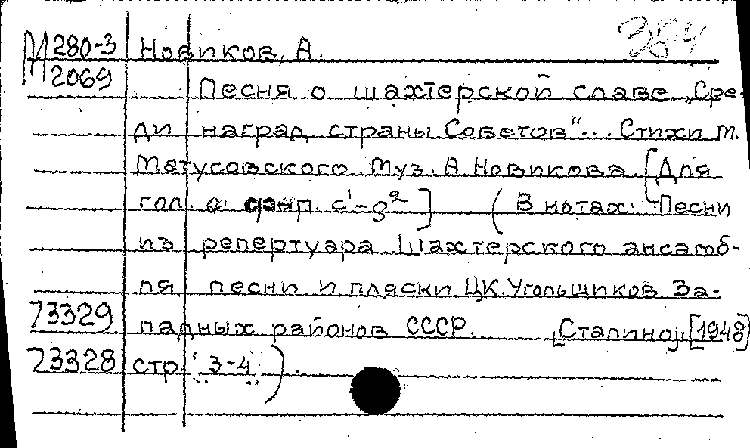 384
М 280-3 Новиков, А.
М 2069 Песня о шахтерской славе „Сре-
ди наград страны Советов“... Стихи М.
Матусовского. Муз. А. Новикова. [Для
гол. с фнп. c¹-g²] (В нотах: Песни
из репертуара Шахтерского ансамб-
ля песни и пляски ЦК Угольщиков За-
73329 падных районов СССР. [Сталино], [1948]
73328 стр. 3-4).